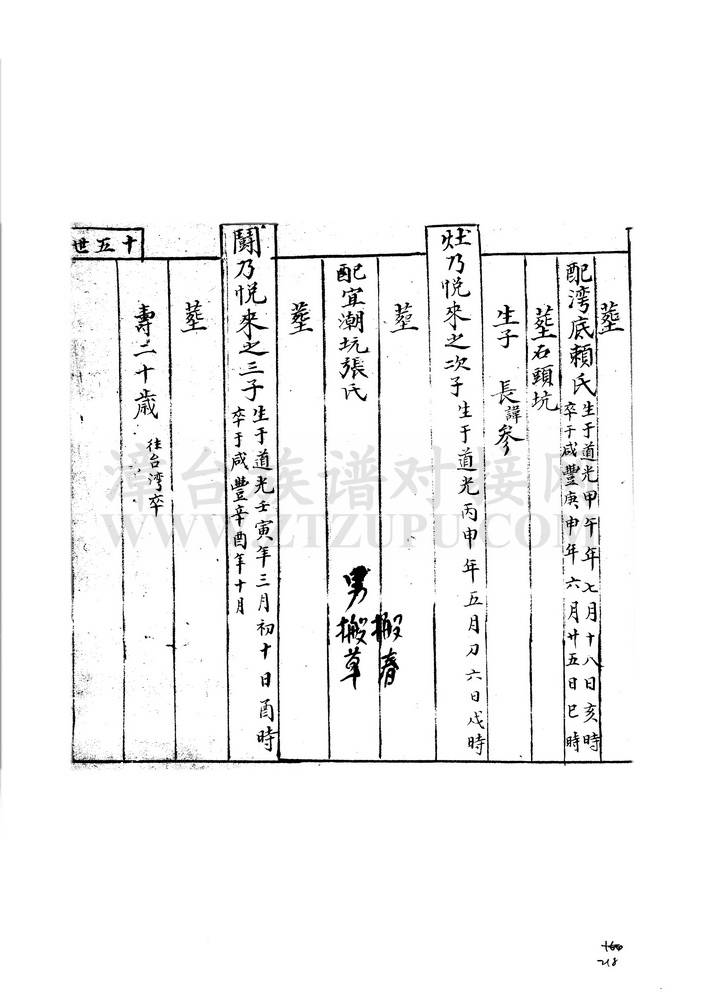 塟
配湾底賴氏 生于道光甲午年七月十八日亥時
卒于咸豐庚申年六月廿五日巳時
塟石頭坑
生子 長諱參
灶乃悦來之次子 生于道光丙申年五月初六日戌時
塟
配宜潮坑張氏
男搬草
搬春
塟
鬪乃悦來之三子 生于道光壬寅年三月初十日酉時
卒于咸豐辛酉年十月
塟
壽二十歲 往台湾卒
十五世
漳台族谱对接网
WWW.ZTZUPU.COM
218